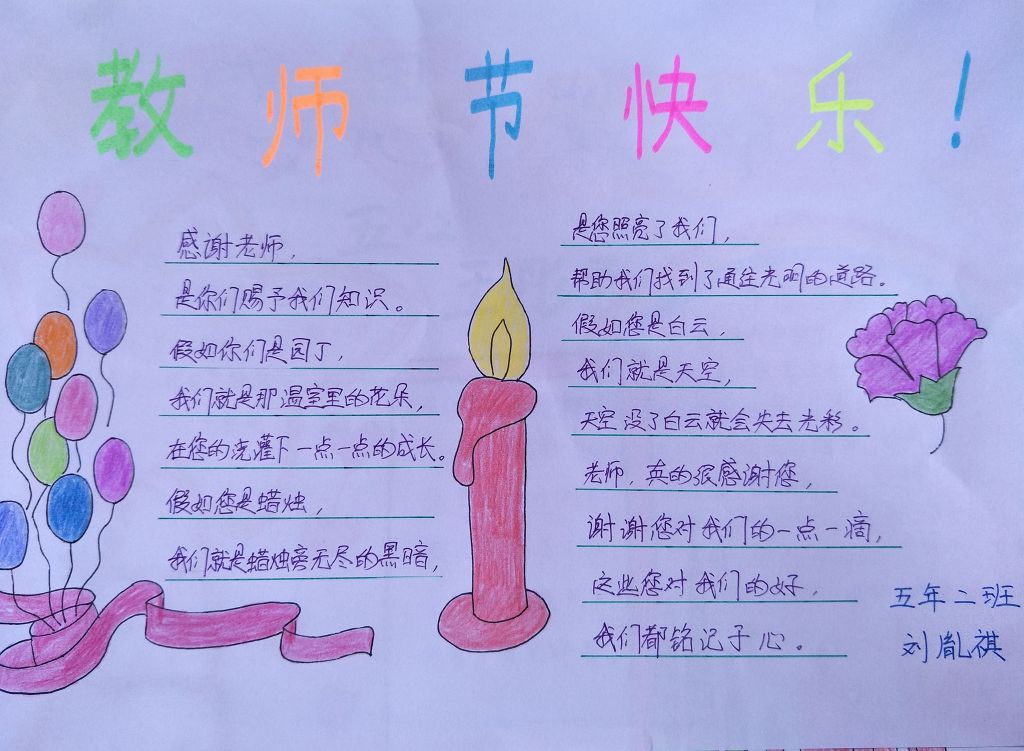 教师节快乐！
感谢老师，
是你们赐予我们知识。
假如你们是园丁，
我们就是那温室里的花朵，
在您的浇灌下一点一点的成长。
假如您是蜡烛，
我们就是蜡烛旁无尽的黑暗，
是您照亮了我们，
帮助我们找到了通往光明的道路。
假如您是白云，
我们就是天空，
天空没了白云就会失去光彩。
老师，真的很感谢您，
谢谢您对我们的一点一滴，
这些您对我们的好，
我们都铭记于心。
五年二班
刘胤祺